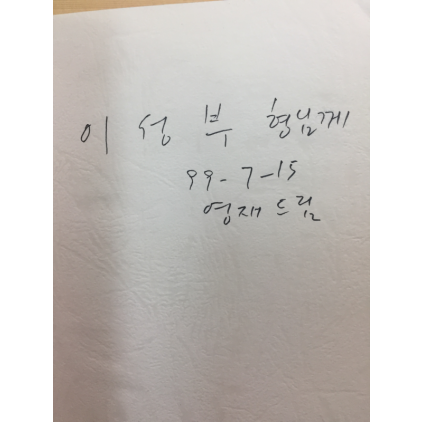 이 성 부 형님께
99-7-15
영재 드림